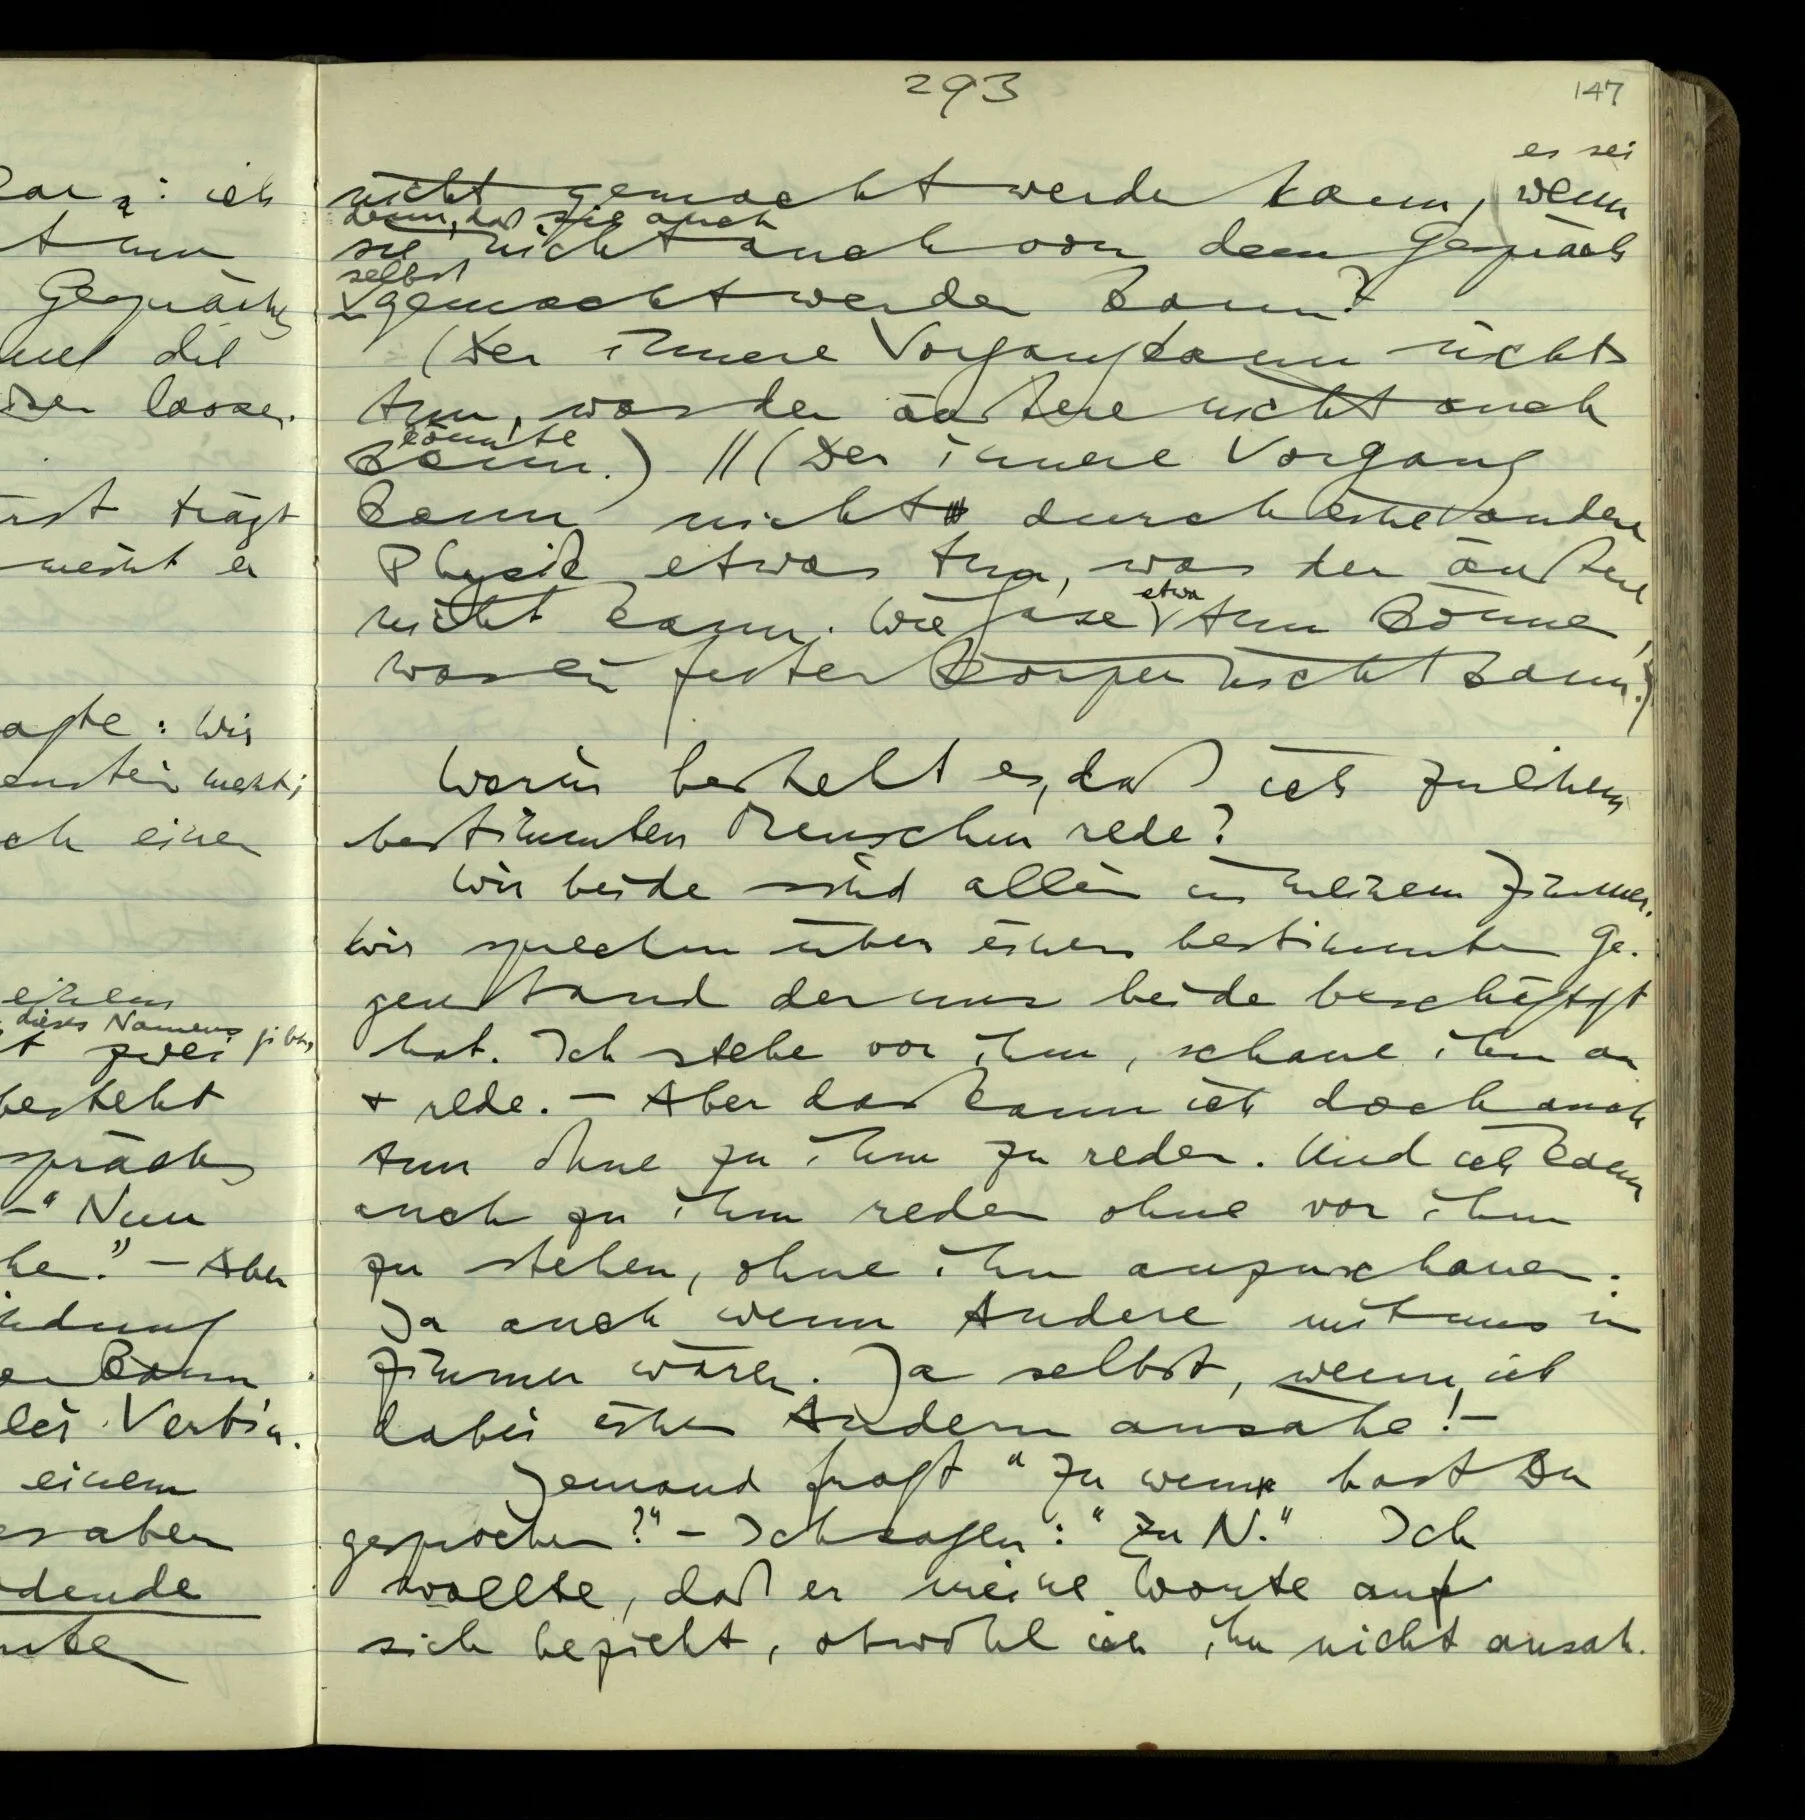 293
147
es sei
nicht gemacht werden kann, wenn
denn, daß sie auch
sie nicht auch von dem Gespräch
selbst
gemacht werden kann?
(Der innere Vorgang kann nichts
tun, was der äußere nicht auch
könnte
kann.) || (Der innere Vorgang
kann nicht durch eine andere
Physik etwas tun, was der äußere
etwa
nicht kann. Wie Gase tun könne,
was ein fester Körper nicht kann.)
Worin besteht es, daß ich zu einem
bestimmten Menschen rede?
Wir beide sind allein in meinem Zimmer.
Wir sprechen über einen bestimmten Ge-
genstand der uns beide beschäftigt
hat. Ich stehe vor ihm, schaue ihn an
+ rede. – Aber das kann ich doch auch
tun ohne zu ihm zu reden. Und ich kann
auch zu ihm reden ohne vor ihm
zu stehen, ohne ihn anzuschauen.
Ja auch wenn Andere mit uns im
Zimmer wären. Ja selbst, wenn ich
dabei einen Andern ansähe! –
Jemand fragt "Zu wem hast Du
gesprochen?" – Ich sage: "Zu N." Ich
wollte, daß er meine Worte auf
sich bezieht, obwohl ich ihn nicht ansah.
ich
tun
Gespräch
dil
lassen.
trägt
meint er
agte: Wir
mehr;
ch einen
einem
dieses Namens
zwei gibt,
besteht
spräch
– "Nun
he." – Aber
indung
kann
lei Verbin-
einem
es aber
dende
nte